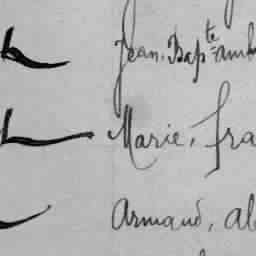 Jean-Bapte Amb
Marie, Fra
Armand, Al